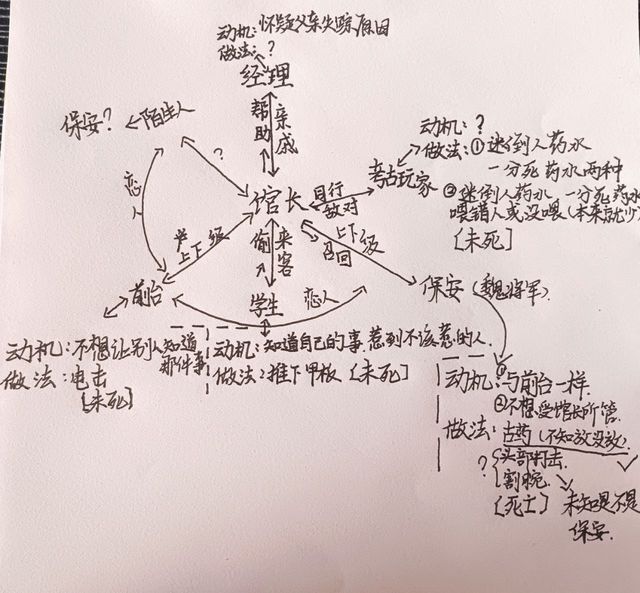 动机：怀疑父亲失踪原因
做法：？
经理
帮助
亲戚
保安？
陌生人
？
恋人
馆长
同行
敌对
考古玩家
动机：？
做法：①迷倒人药水
一分死药水两种
②迷倒人药水 一分死药水
喂错人或没喂（本来就少
[未死]
上下级
偷
来客
上下级
召回
前台
学生
恋人
保安（魏将军）
动机：不想让别人知道
那件事
做法：电击
[未死]
动机：知道自己的事 惹到不该惹的人.
做法：推下甲板 [未死]
动机：①与前台一样.
②不想受馆长所管.
做法：古药（不知放没放）.
？
头部打击.
割腕.
[死亡]
未知是不是
保安.